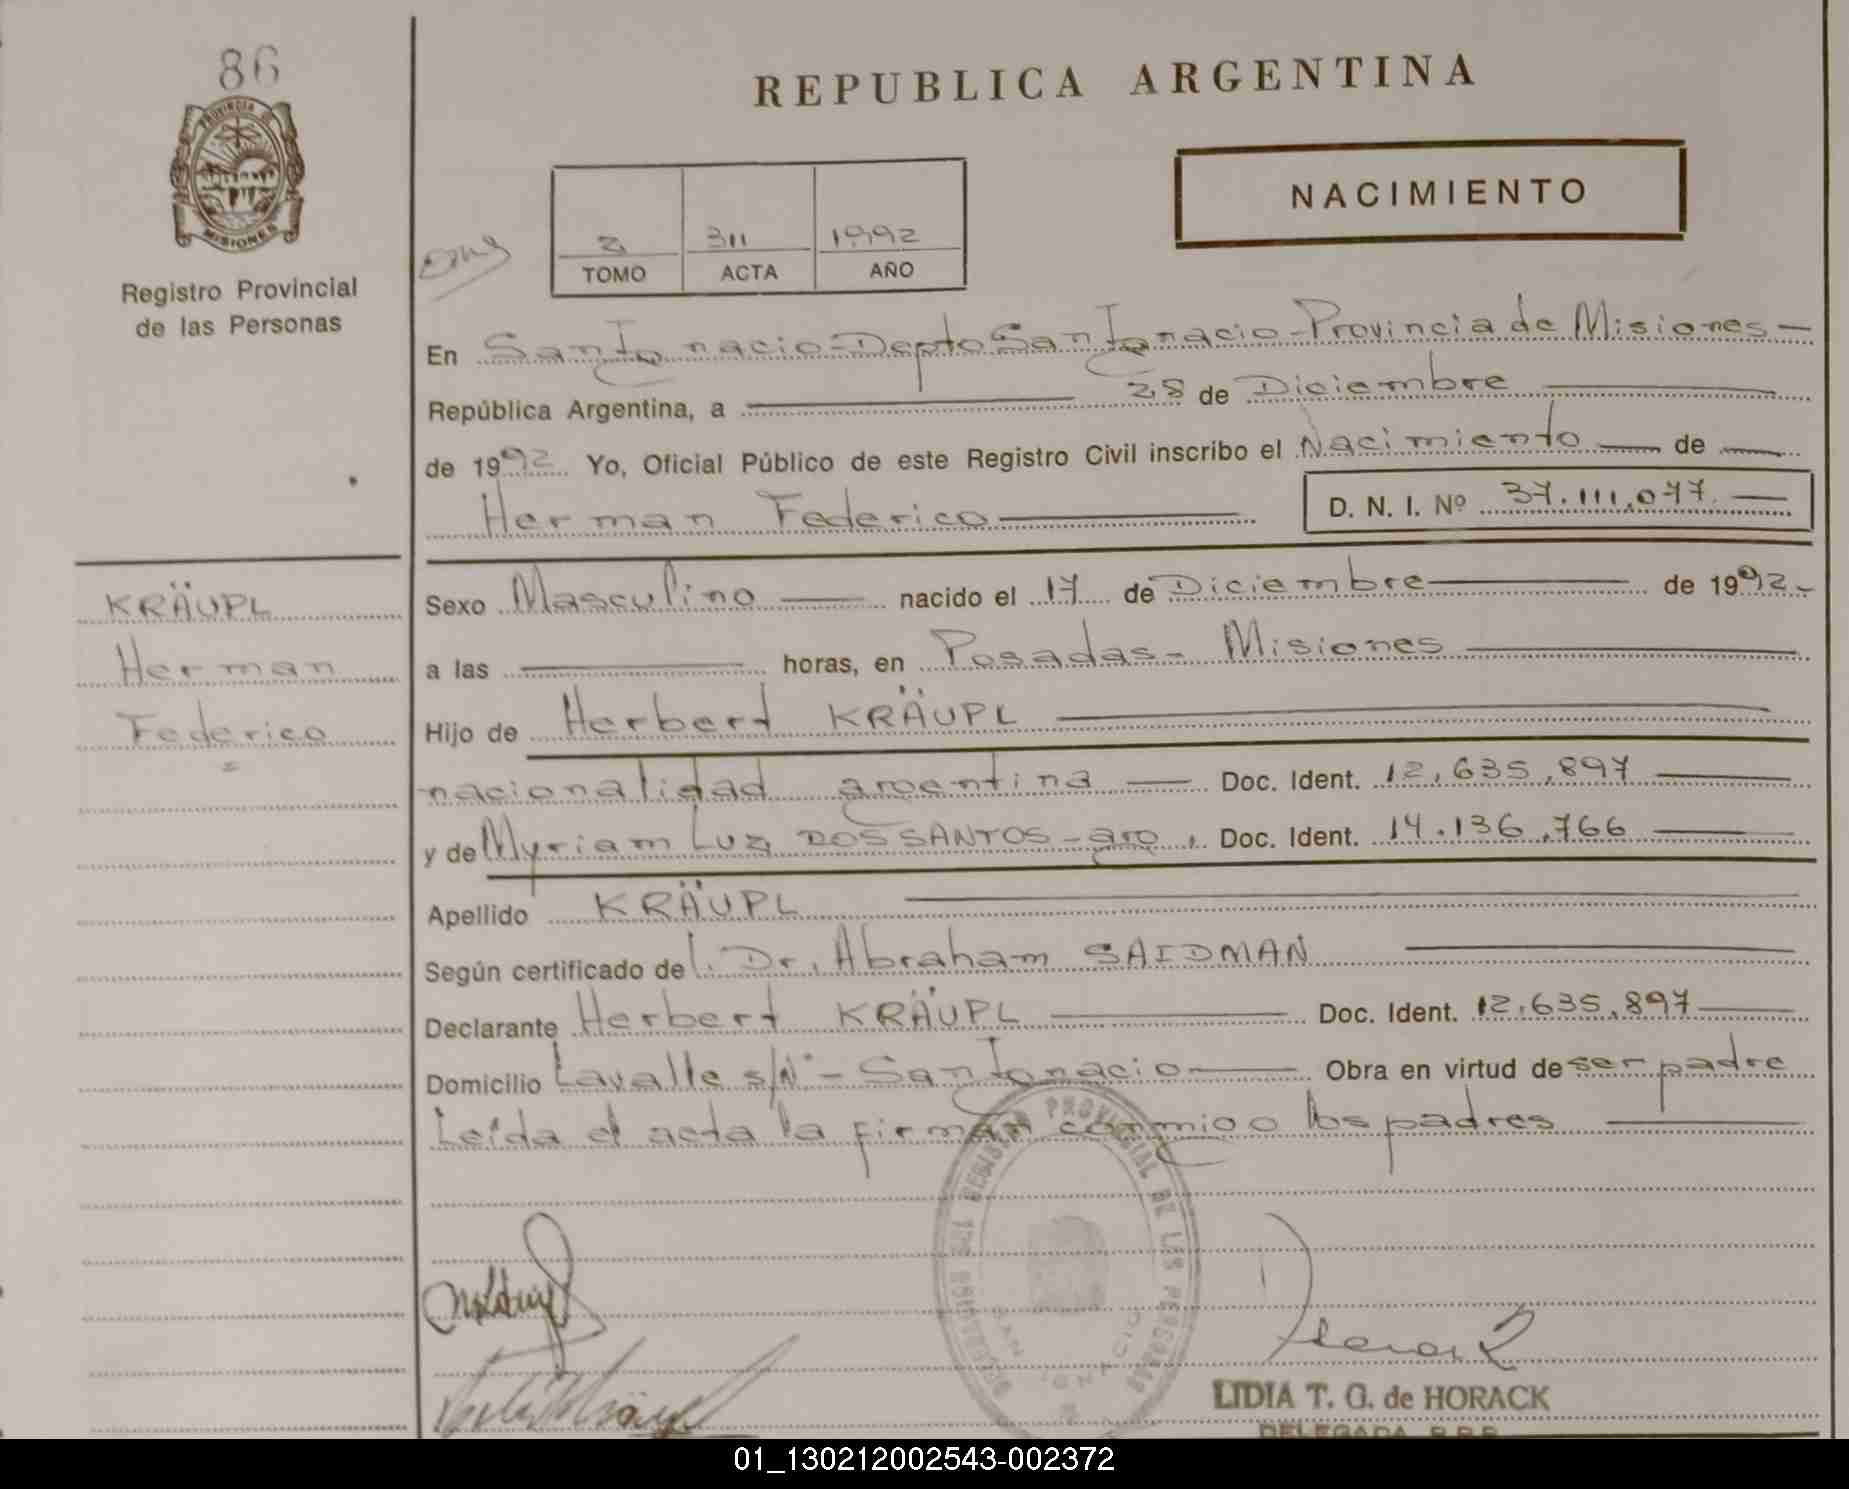 86
PROVINCIA DE
MISIONES
Registro Provincial
de las Personas
REPUBLICA ARGENTINA
NACIMIENTO
2 311 1992
TOMO ACTA AÑO
En San Ignacio - Depto San Ignacio - Provincia de Misiones -
República Argentina, a 28 de Diciembre
de 1992 Yo, Oficial Público de este Registro Civil inscribo el Nacimiento de
Herman Federico D. N. I. Nº 37.111.077.
KRÄUPL
Herman
Federico
Sexo Masculino nacido el 17 de Diciembre de 1992.-
a las horas, en Posadas - Misiones
Hijo de Herbert KRÄUPL
nacionalidad argentina Doc. Ident. 12.635.897
y de Myriam Luz DOS SANTOS - arg., Doc. Ident. 14.136.766
Apellido KRÄUPL
Según certificado de l. Dr. Abraham SAIDMAN
Declarante Herbert KRÄUPL Doc. Ident. 12.635.897
Domicilio Lavalle s/Nº - San Ignacio Obra en virtud de ser padre
Leída el acta la firman conmigo los padres
REGISTRO PROVINCIAL DE LAS PERSONAS
SAN IGNACIO
LIDIA T. G. de HORACK
DELEGADA R.P.P.
01_130212002543-002372